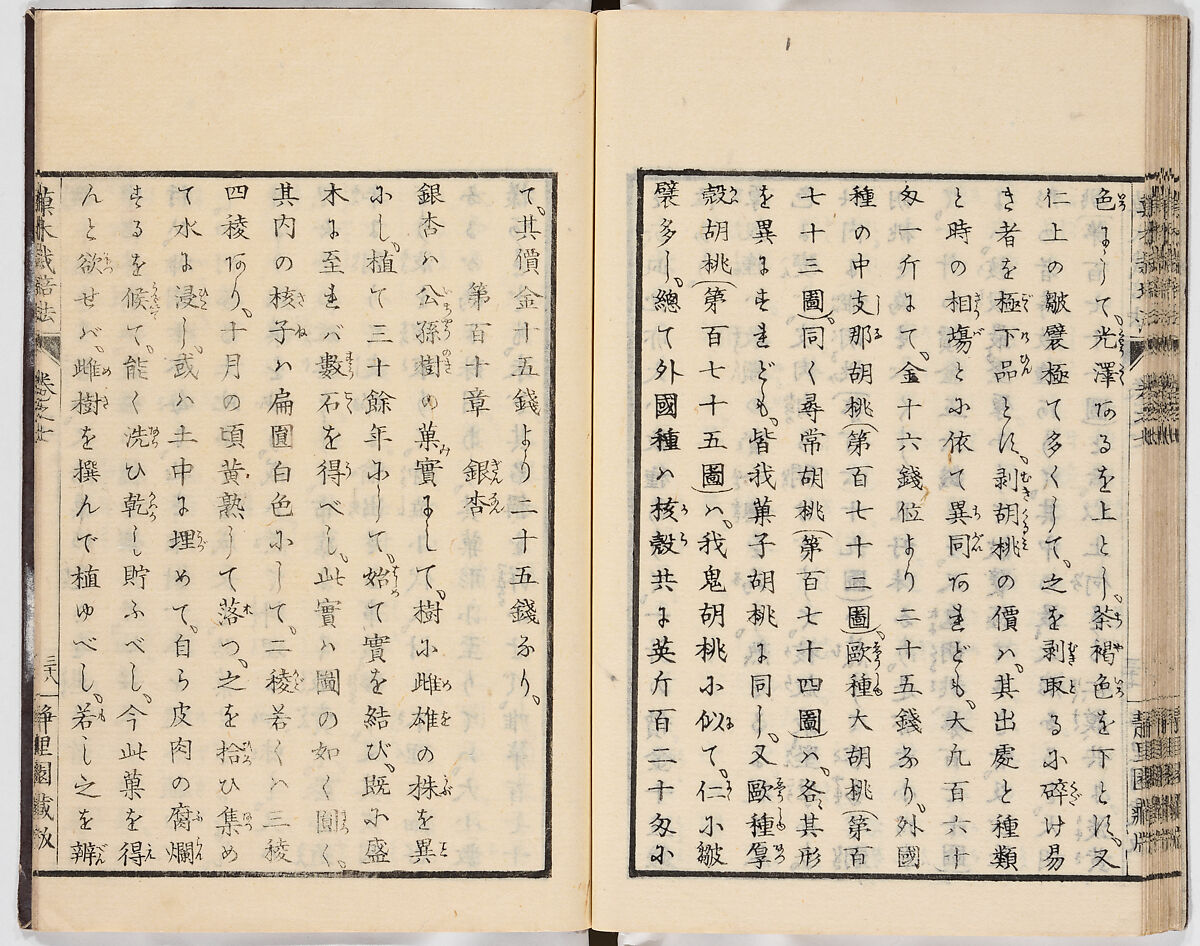 色にて、光澤あるを上とし、茶褐色を下とす、又
仁上の皺襞極て多くして、之を剥取るに碎け易
き者を極下品とす、剥胡桃の價ハ、其出處と種類
と時の相塲とに依て異同あれども、大凡百六十
匁一斤にて、金十六錢位より二十五錢なり、外國
種の中支那胡桃(第百七十二圖)、歐種大胡桃(第百
七十三圖)、同く尋常胡桃(第百七十四圖)ハ、各其形
を異にすれども、皆我菓子胡桃に同し、又歐種厚
殻胡桃(第百七十五圖)ハ、我鬼胡桃に似て、仁に皺
襞多し、總て外國種ハ核殻共に英斤百二十匁に
て、其價金十五錢より二十五錢なり、
第百十章　銀杏
銀杏ハ公孫樹の菓實にして、樹に雌雄の株を異
にし、植て三十餘年にして、始て實を結び、既に盛
木に至れバ數石を得べし、此實ハ圖の如く圓く、
其内の核子ハ扁圓白色にして、二稜若くハ三稜
四稜あり、十月の頃黄熟して落つ、之を拾ひ集め
て水に浸し、或ハ土中に埋めて、自ら皮肉の腐爛
するを候て、能く洗ひ乾し貯ふべし、今此菓を得
んと欲せバ、雌樹を撰んで植ゆべし、若し之を辨
菓木栽培法
卷之七
三十八
静里園藏板